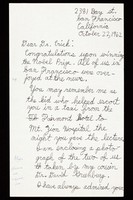 2731 Bay St.
San Francisco
California
October 22, 1962
Dear Dr. Crick:
Congratulations upon winning
the Nobel Prize. All of us in
San Francisco are over-
joyed at the news.
You may remember me as
the kid who helped escort
you in a taxi from the
Fairmont Hotel to
Mt. Zion Hospital, the
night you gave the lecture.
I am enclosing a photo-
graph of the two of us
taken by my cousin
Dr. David
I have always admired your